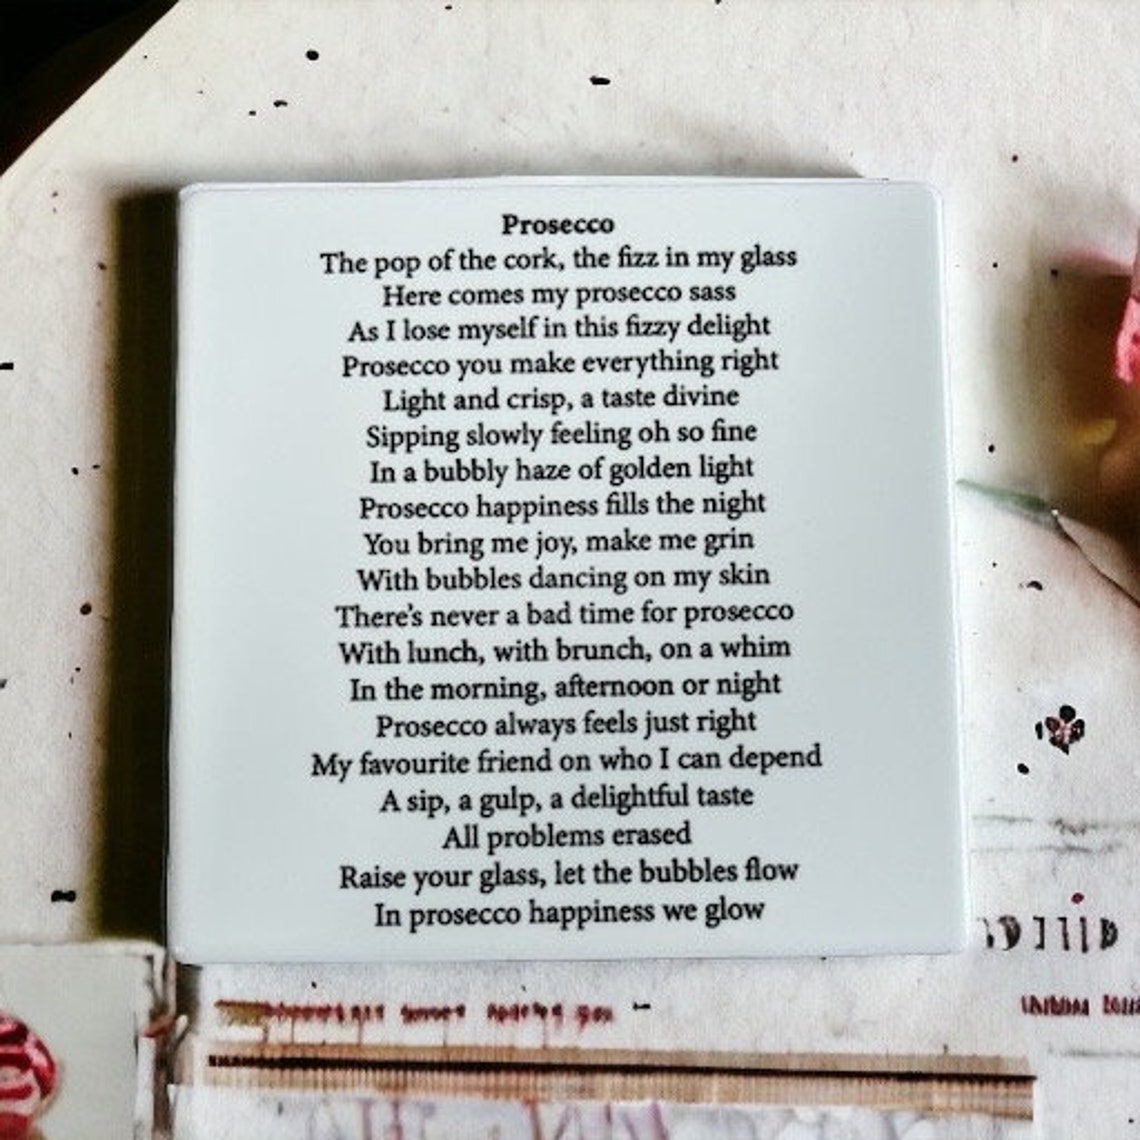 Prosecco
The pop of the cork, the fizz in my glass
Here comes my prosecco sass
As I lose myself in this fizzy delight
Prosecco you make everything right
Light and crisp, a taste divine
Sipping slowly feeling oh so fine
In a bubbly haze of golden light
Prosecco happiness fills the night
You bring me joy, make me grin
With bubbles dancing on my skin
There's never a bad time for prosecco
With lunch, with brunch, on a whim
In the morning, afternoon or night
Prosecco always feels just right
My favourite friend on who I can depend
A sip, a gulp, a delightful taste
All problems erased
Raise your glass, let the bubbles flow
In prosecco happiness we glow